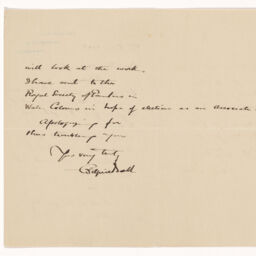 will look at the work.
I have sent to the
Royal Society of Painters in
Water Colours in hope of election as an Associate.
Apologising for
thus troubling you
Yrs very truly